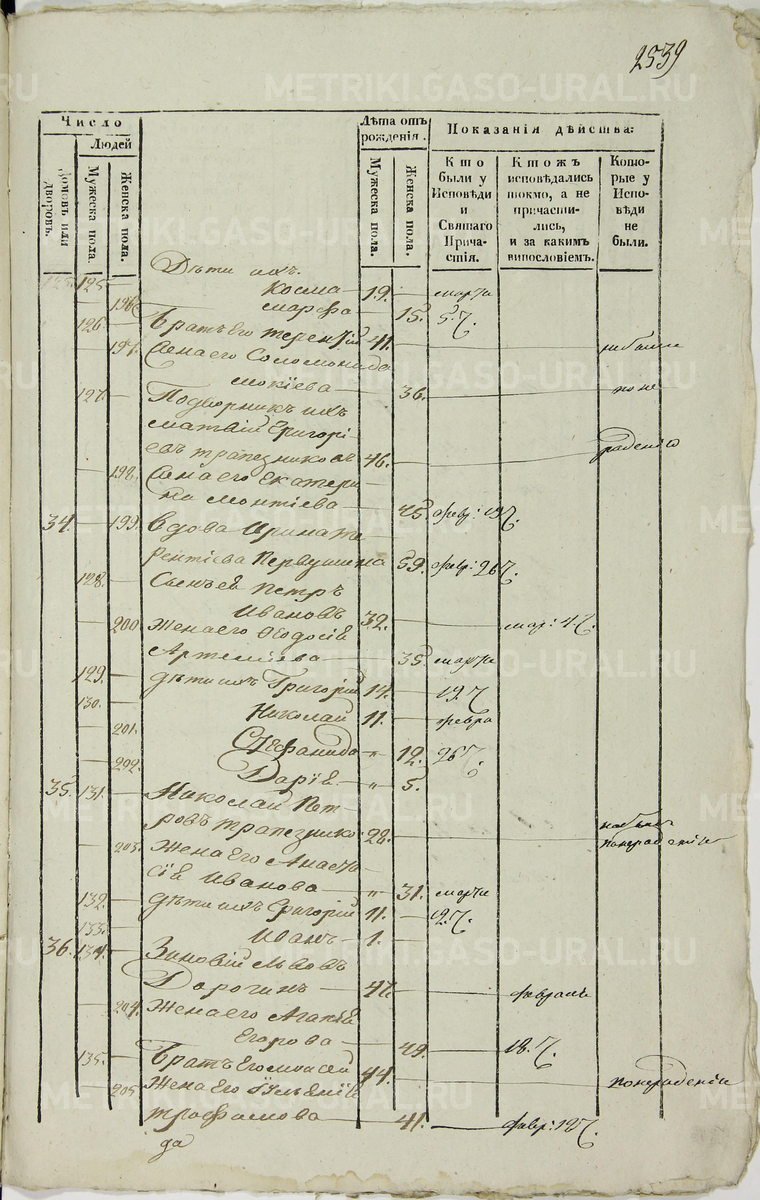 2539
Число
Людей
Домовъ или дворовъ.
Мужеска пола.
Женска пола.
Лѣта отъ рожденія.
Мужеска пола.
Женска пола.
Показанія дѣйства:
Кто были у Исповѣди и Святаго Причастія.
Ктожъ исповѣдались токмо, а не причастились, и за какимъ випословіемъ.
Которые у Исповѣди не были.
Дѣти ихъ.
125 Косма 19. марта
196 Марѳа 15. 5 ч.
126 Братъ Его Терентий 41. не были
197. Жена его Соломонида
Мокіева 36. по не
127. Подворникъ ихъ
Матвій Григорі
евъ Трапезниковъ 46. радению
198. Жена его Екатери
на Монтіева 45 февр: 19 ч.
34. 199. Вдова Ирина Те
рентіева Первушина 59. февр: 26 ч.
128. Сынъ ея Петръ
Ивановъ 32. мар: 4 ч.
200 Жена его Ѳеодосія
Артеміева 35. марта
129. Дѣти ихъ Григорій 14. 19 ч
130. Николай 11. февра
201. Стефанида " 12. 26 ч.
202. Дарія " 5.
35. 131. Николай Пет
ровъ Трапезнико 28. не былъ
понерадѣнію
203. Жена Его Анаста
сія Иванова " 31. марта
132. Дѣти ихъ Григорій 11. 12 ч.
133. Иванъ 1.
36. 134. Зиновій Львовъ
Дорогинъ 47. февраля
204. Жена его Агафія
Егорова 49. 18 ч.
135. Братъ Его Моисей 44. понерадению
205 Жена Его Іульянія
Трофимова 41. февр: 19 ч.
да
METRIKI.GASO-URAL.RU